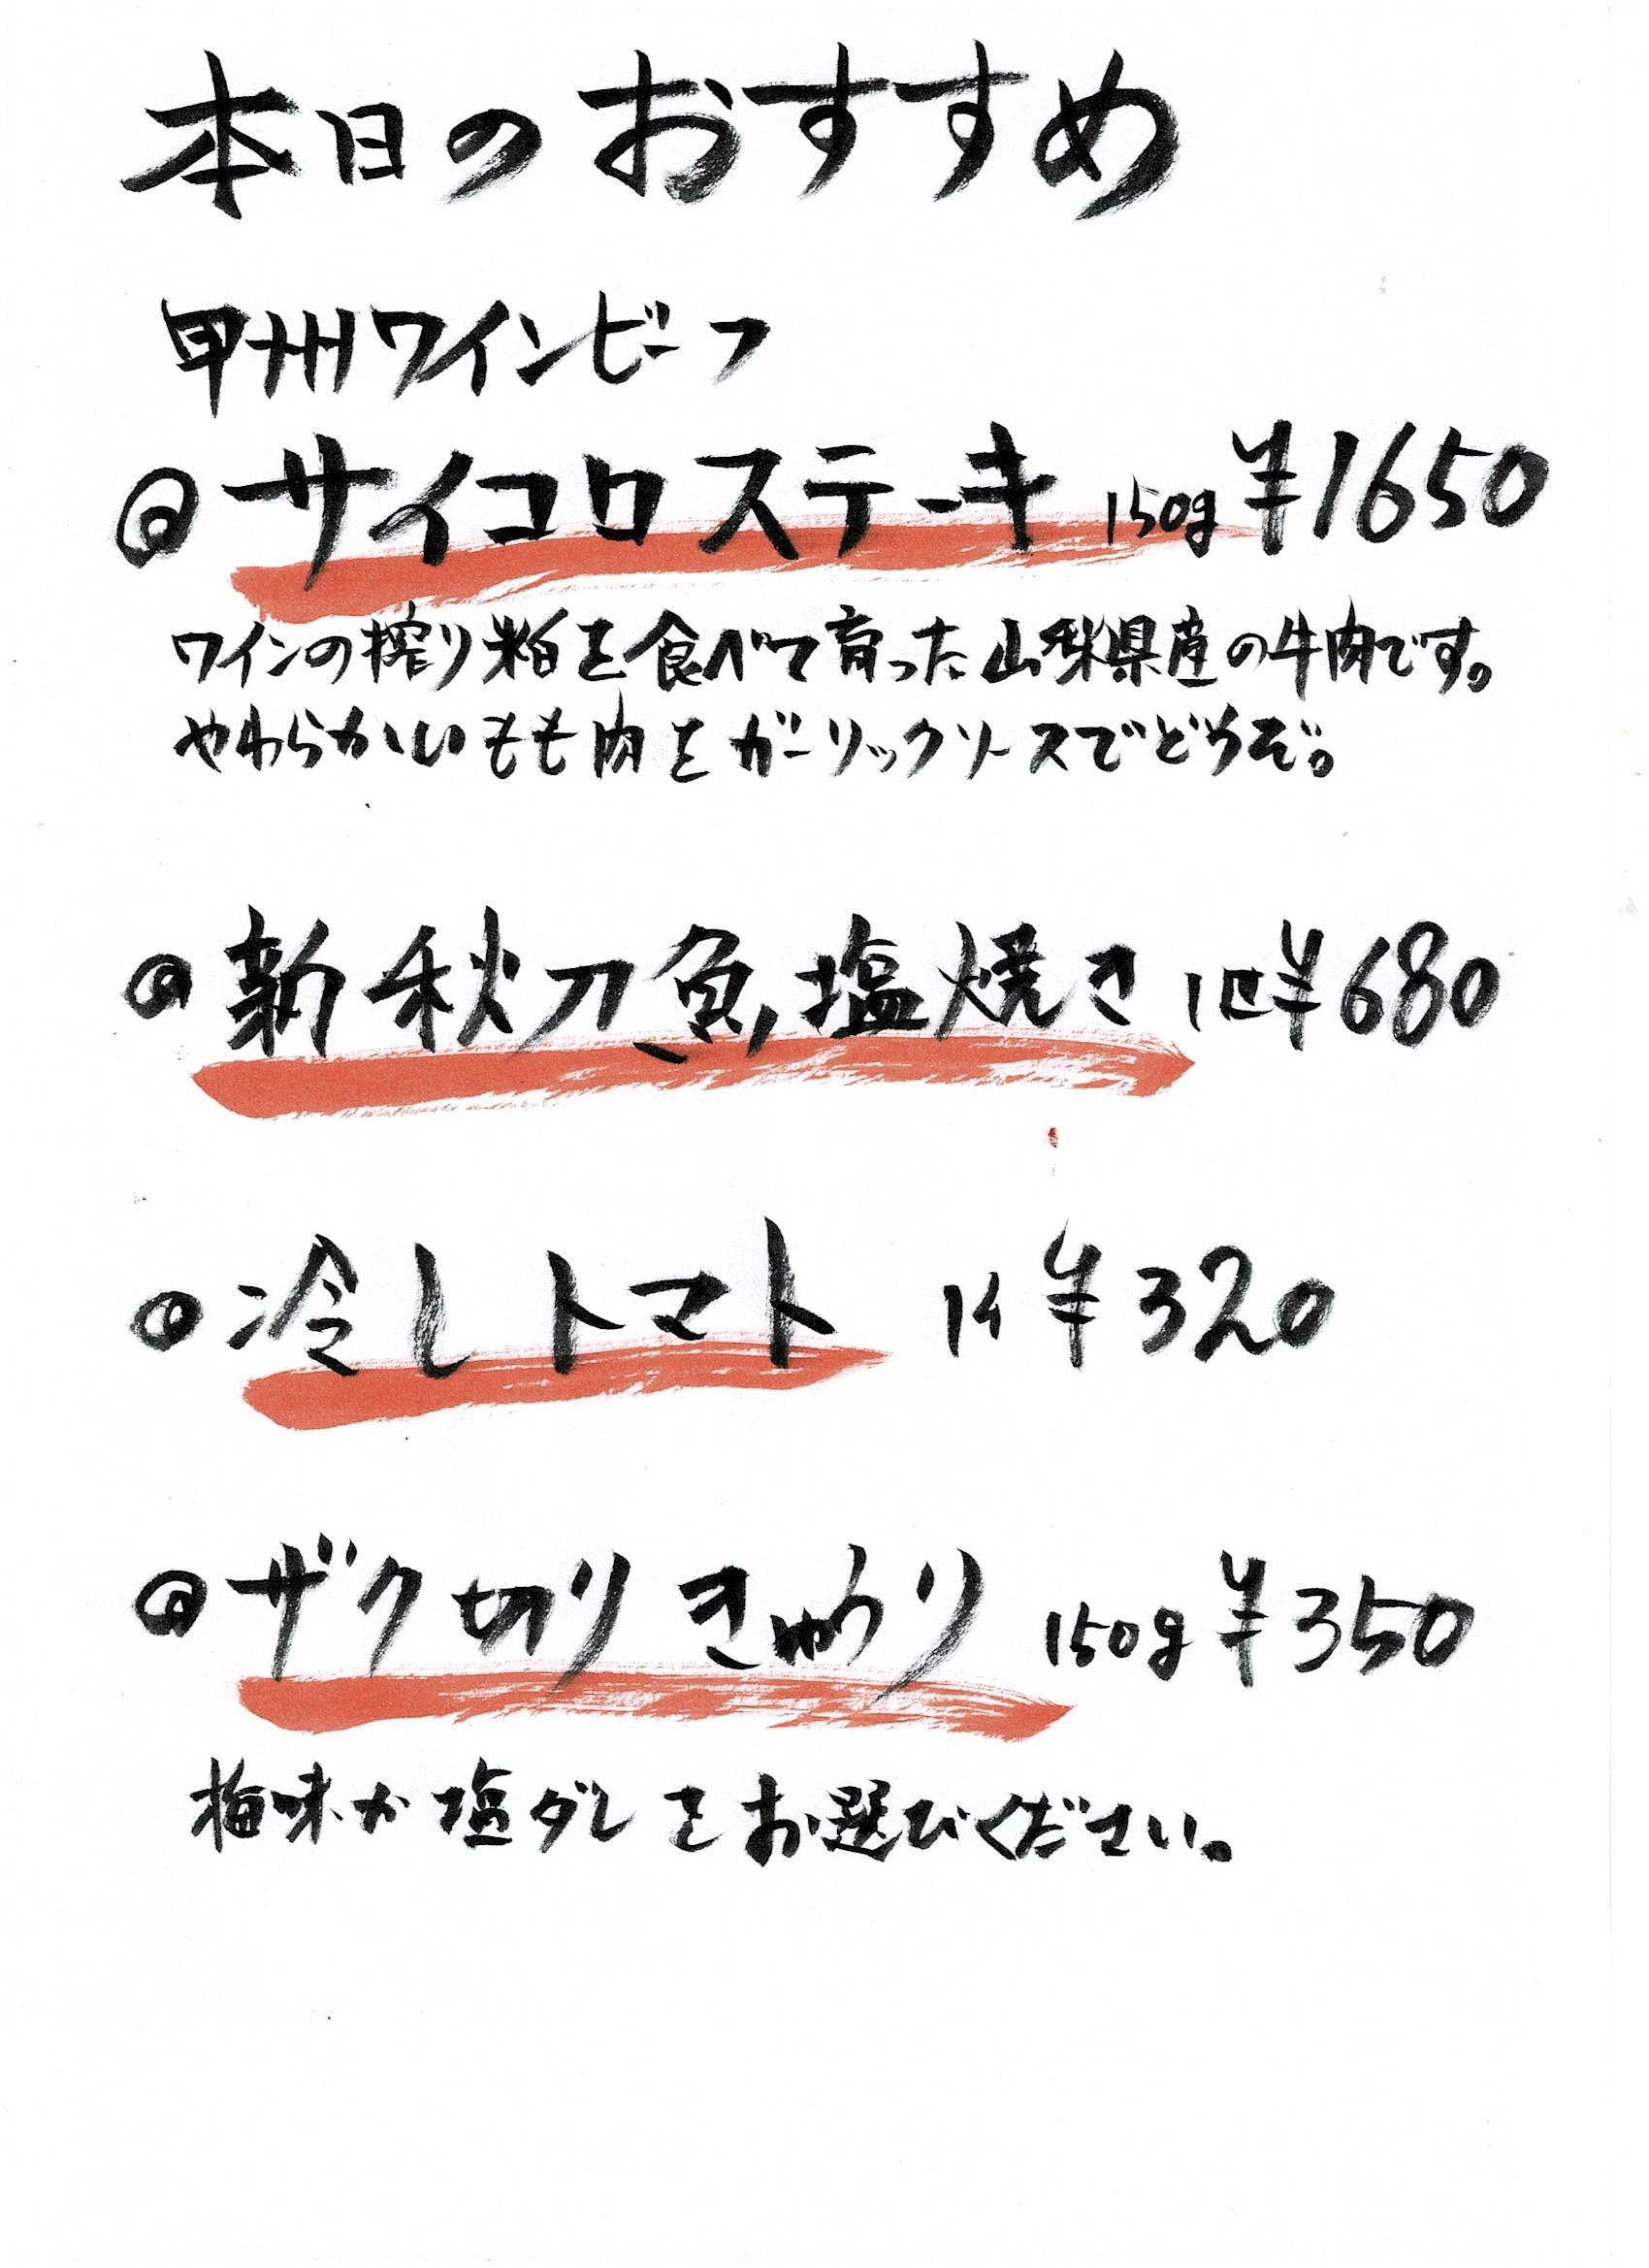 本日のおすすめ
甲州ワインビーフ
◎サイコロステーキ 150g ¥1650
ワインの搾り粕を食べて育った山梨県産の牛肉です。
やわらかいもも肉をガーリックソースでどうぞ。
◎新秋刀魚塩焼き 1匹¥680
◎冷しトマト 1ヶ ¥320
◎ザク切りきゅうり 150g ¥350
梅味か塩ダレをお選びください。